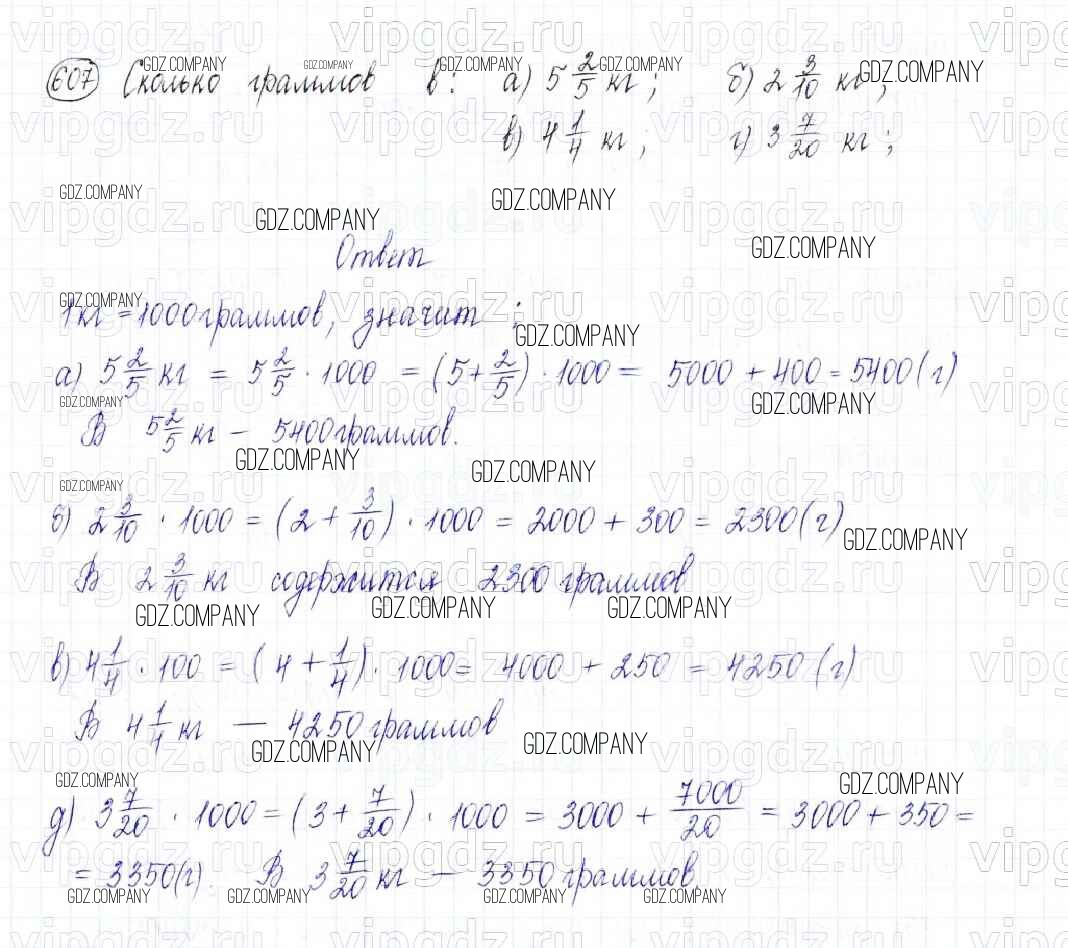 607 Сколько граммов в: а) 5 2/5 кг; б) 2 3/10 кг;
в) 4 1/4 кг; г) 3 7/20 кг;
Ответ
1 кг = 1000 граммов, значит:
а) 5 2/5 кг = 5 2/5 · 1000 = (5 + 2/5) · 1000 = 5000 + 400 = 5400 (г)
В 5 2/5 кг — 5400 граммов.
б) 2 3/10 · 1000 = (2 + 3/10) · 1000 = 2000 + 300 = 2300 (г)
В 2 3/10 кг содержится 2300 граммов
в) 4 1/4 · 100 = (4 + 1/4) · 1000 = 4000 + 250 = 4250 (г)
В 4 1/4 кг — 4250 граммов
д) 3 7/20 · 1000 = (3 + 7/20) · 1000 = 3000 + 7000/20 = 3000 + 350 =
= 3350 (г). В 3 7/20 кг — 3350 граммов.
GDZ.COMPANY
vipgdz.ru